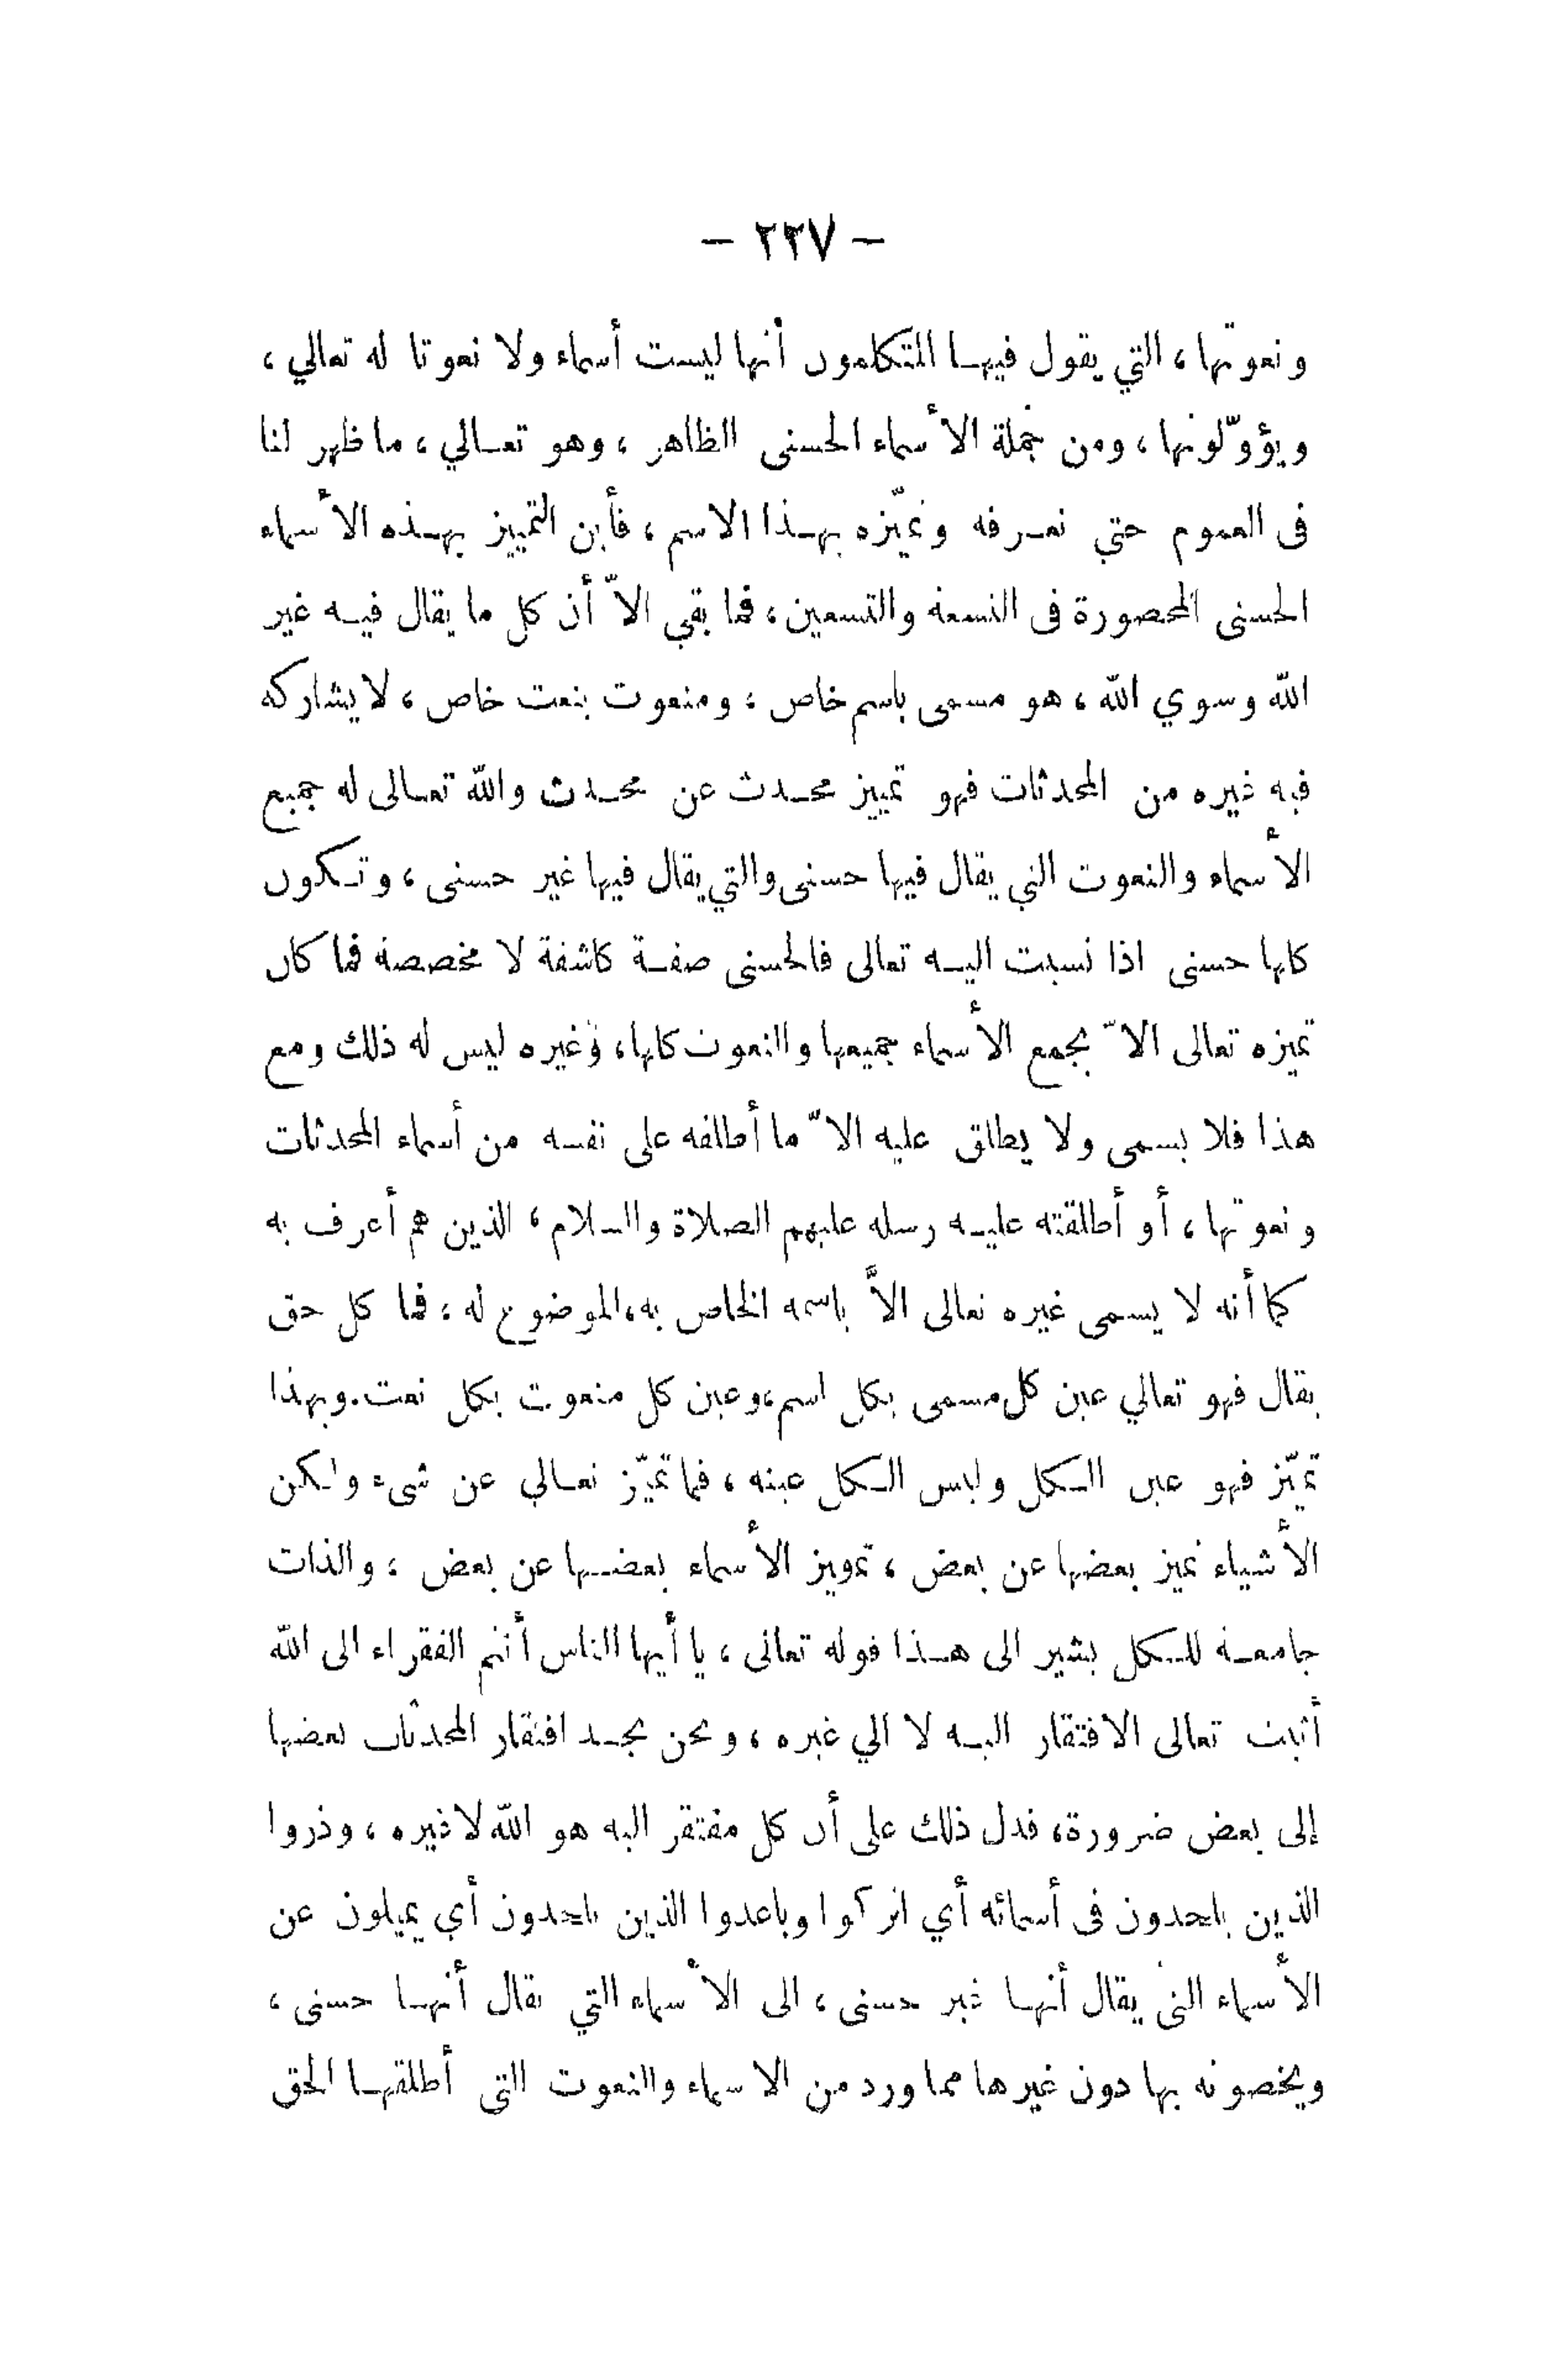 — ٢٣٧ —
ونعوتها، التي يقول فيها المتكلمون أنها ليست أسماء ولا نعوتا له تعالي،
ويؤوّلونها، ومن جملة الأسماء الحسنى الظاهر، وهو تعالي، ما ظهر لنا
فى العموم حتي نعرفه ونميّزه بهذا الاسم، فأين التمييز بهذه الأسماء
الحسنى المحصورة فى التسعة والتسعين، فما بقي الاّ أن كل ما يقال فيه غير
الله وسوي الله، هو مسمى باسم خاص، ومنعوت بنعت خاص، لا يشاركه
فيه غيره من المحدثات فهو تمييز محدث عن محدث والله تعالى له جميع
الأسماء والنعوت التي يقال فيها حسنى والتي يقال فيها غير حسنى، وتكون
كلها حسنى اذا نسبت اليه تعالى فالحسنى صفة كاشفة لا مخصصة فما كان
تميزه تعالى الاّ بجمع الأسماء جميعها والنعوت كلها، وغيره ليس له ذلك ومع
هذا فلا يسمى ولا يطلق عليه الاّ ما أطلقه على نفسه من أسماء المحدثات
ونعوتها، أو أطلقته عليه رسله عليهم الصلاة والسلام، الذين هم أعرف به
كما أنه لا يسمى غيره تعالى الاَّ باسمه الخاص به، الموضوع له، فما كل حق
يقال فهو تعالي عين كل مسمى بكل اسم، وعين كل منعوت بكل نعت. وبهذا
تميّز فهو عين الكل وليس الكل عينه، فما تميّز تعالي عن شىء ولكن
الأشياء تميز بعضها عن بعض، تمويز الأسماء بعضها عن بعض، والذات
جامعة للكل يشير الى هذا قوله تعالى، يا أيها الناس أنتم الفقراء الى الله
أثبت تعالى الافتقار اليه لا الي غيره، ونحن نجد افتقار المحدثات بعضها
إلى بعض ضرورة، فدل ذلك على أن كل مفتقر اليه هو الله لا غيره، وذروا
الذين يلحدون فى أسمائه أي اتركوا وباعدوا الذين يلحدون أي يميلون عن
الأسماء التي يقال أنها غير حسنى، الى الأسماء التي يقال أنها حسنى،
ويخصونه بها دون غيرها مما ورد من الاسماء والنعوت التى أطلقها الحق